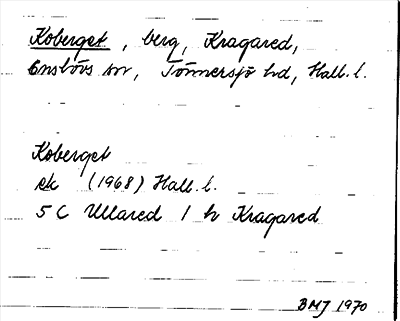 Koberget, berg, Kragared,
Enslövs sn, Tönnersjö hd, Hall. l.
Koberget
ek (1968) Hall. l.
5 C Ullared 1 h Kragared
BMJ 1970